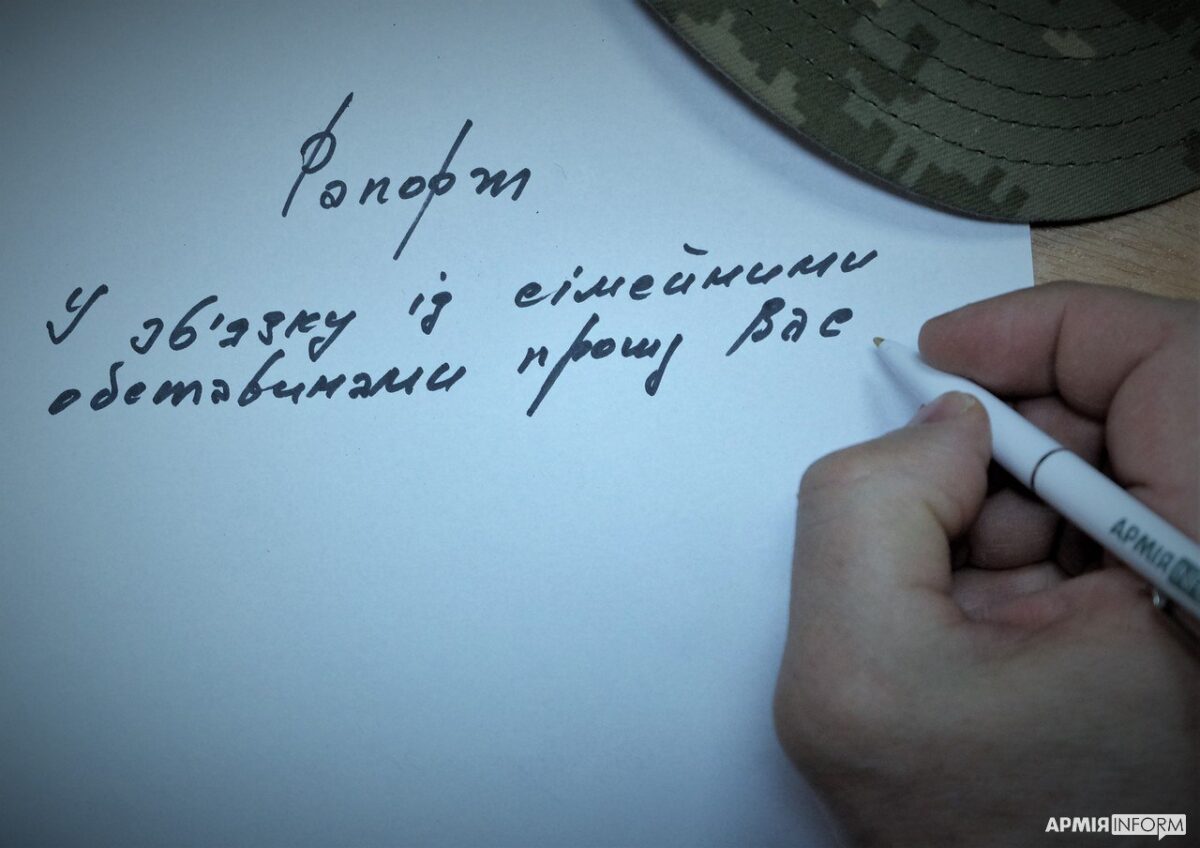 Рапорт
У зв'язку із сімейними
обставинами прошу Вас
АРМІЯ
АРМІЯINFORM